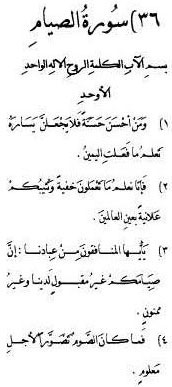 ٣٦) سورة الصيام
بسم الآب الكلمة الروح الإله الواحد
الأوحد
١) ومن أحسن حسنة فلا يجعلن يساره
تعلم ما فعلت اليمين .
٢) فإنا نعلم ما تعملون خفية ونثيبكم
علانية بعين العالمين .
٣) يأيها المنافقون من عبادنا : إن
صيامكم غير مقبول لدينا وغير
ممنون .
٤) فما كان الصوم تضورا لأجل
معلوم .